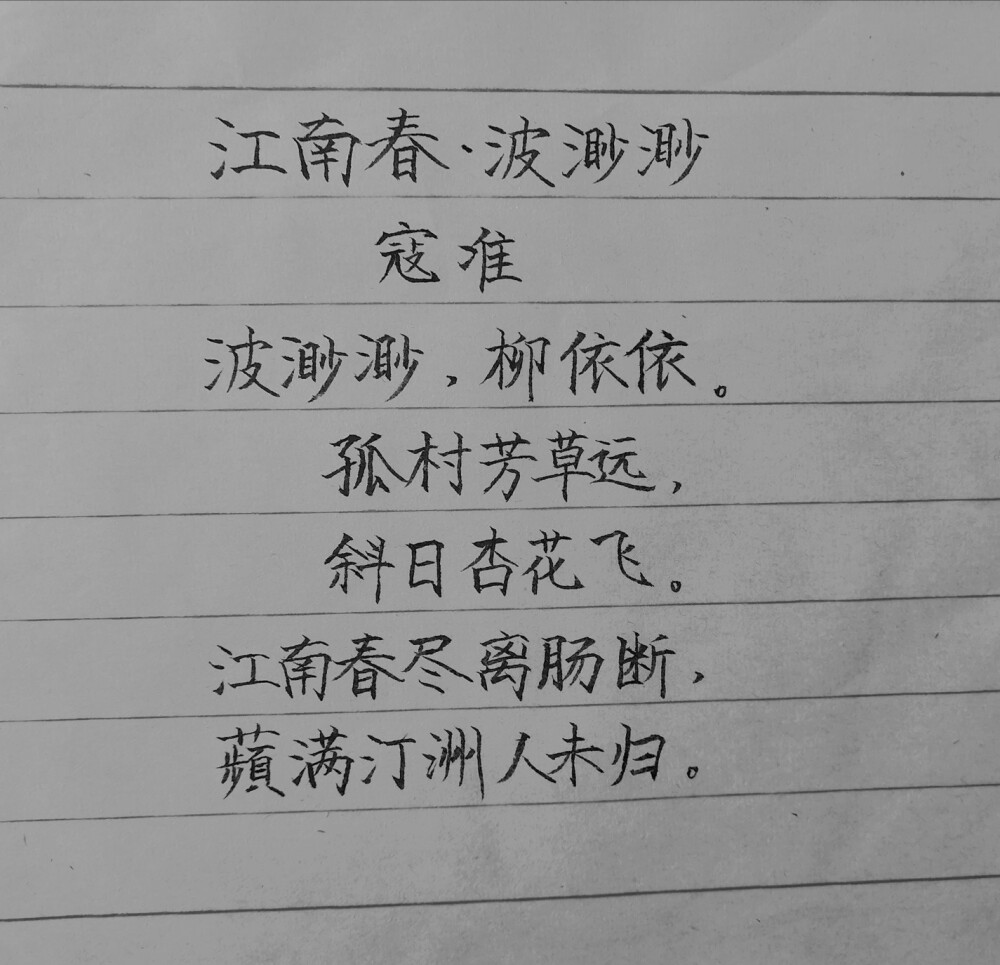 江南春·波渺渺
寇准
波渺渺，柳依依。
孤村芳草远，
斜日杏花飞。
江南春尽离肠断，
蘋满汀洲人未归。